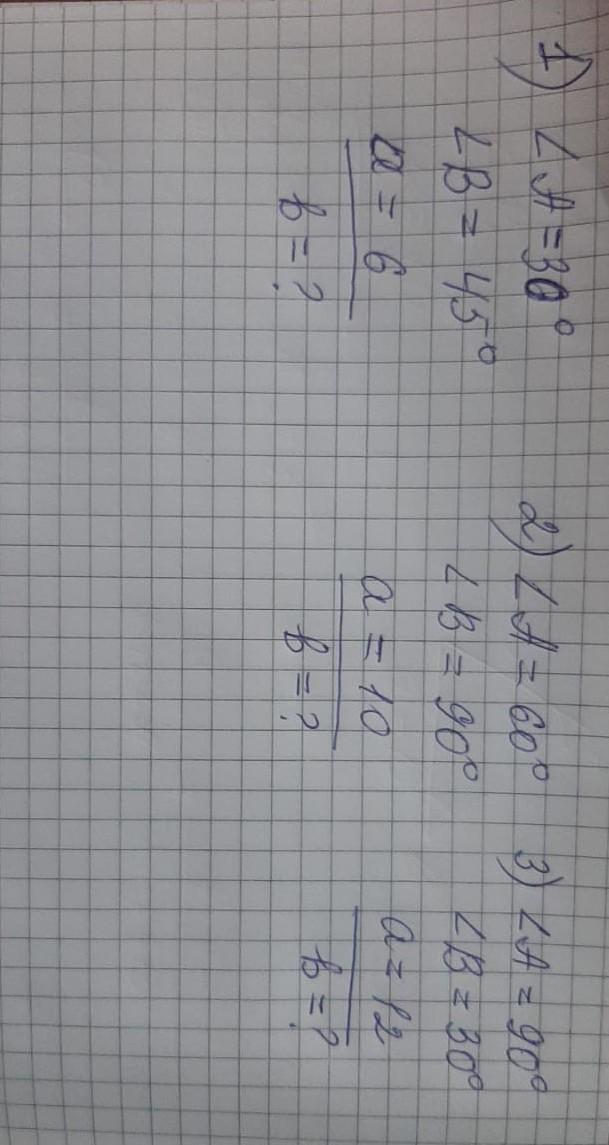 1) ∠A = 30°
∠B = 45°
a = 6
b = ?
2) ∠A = 60°
∠B = 90°
a = 10
b = ?
3) ∠A = 90°
∠B = 30°
a = 12
b = ?